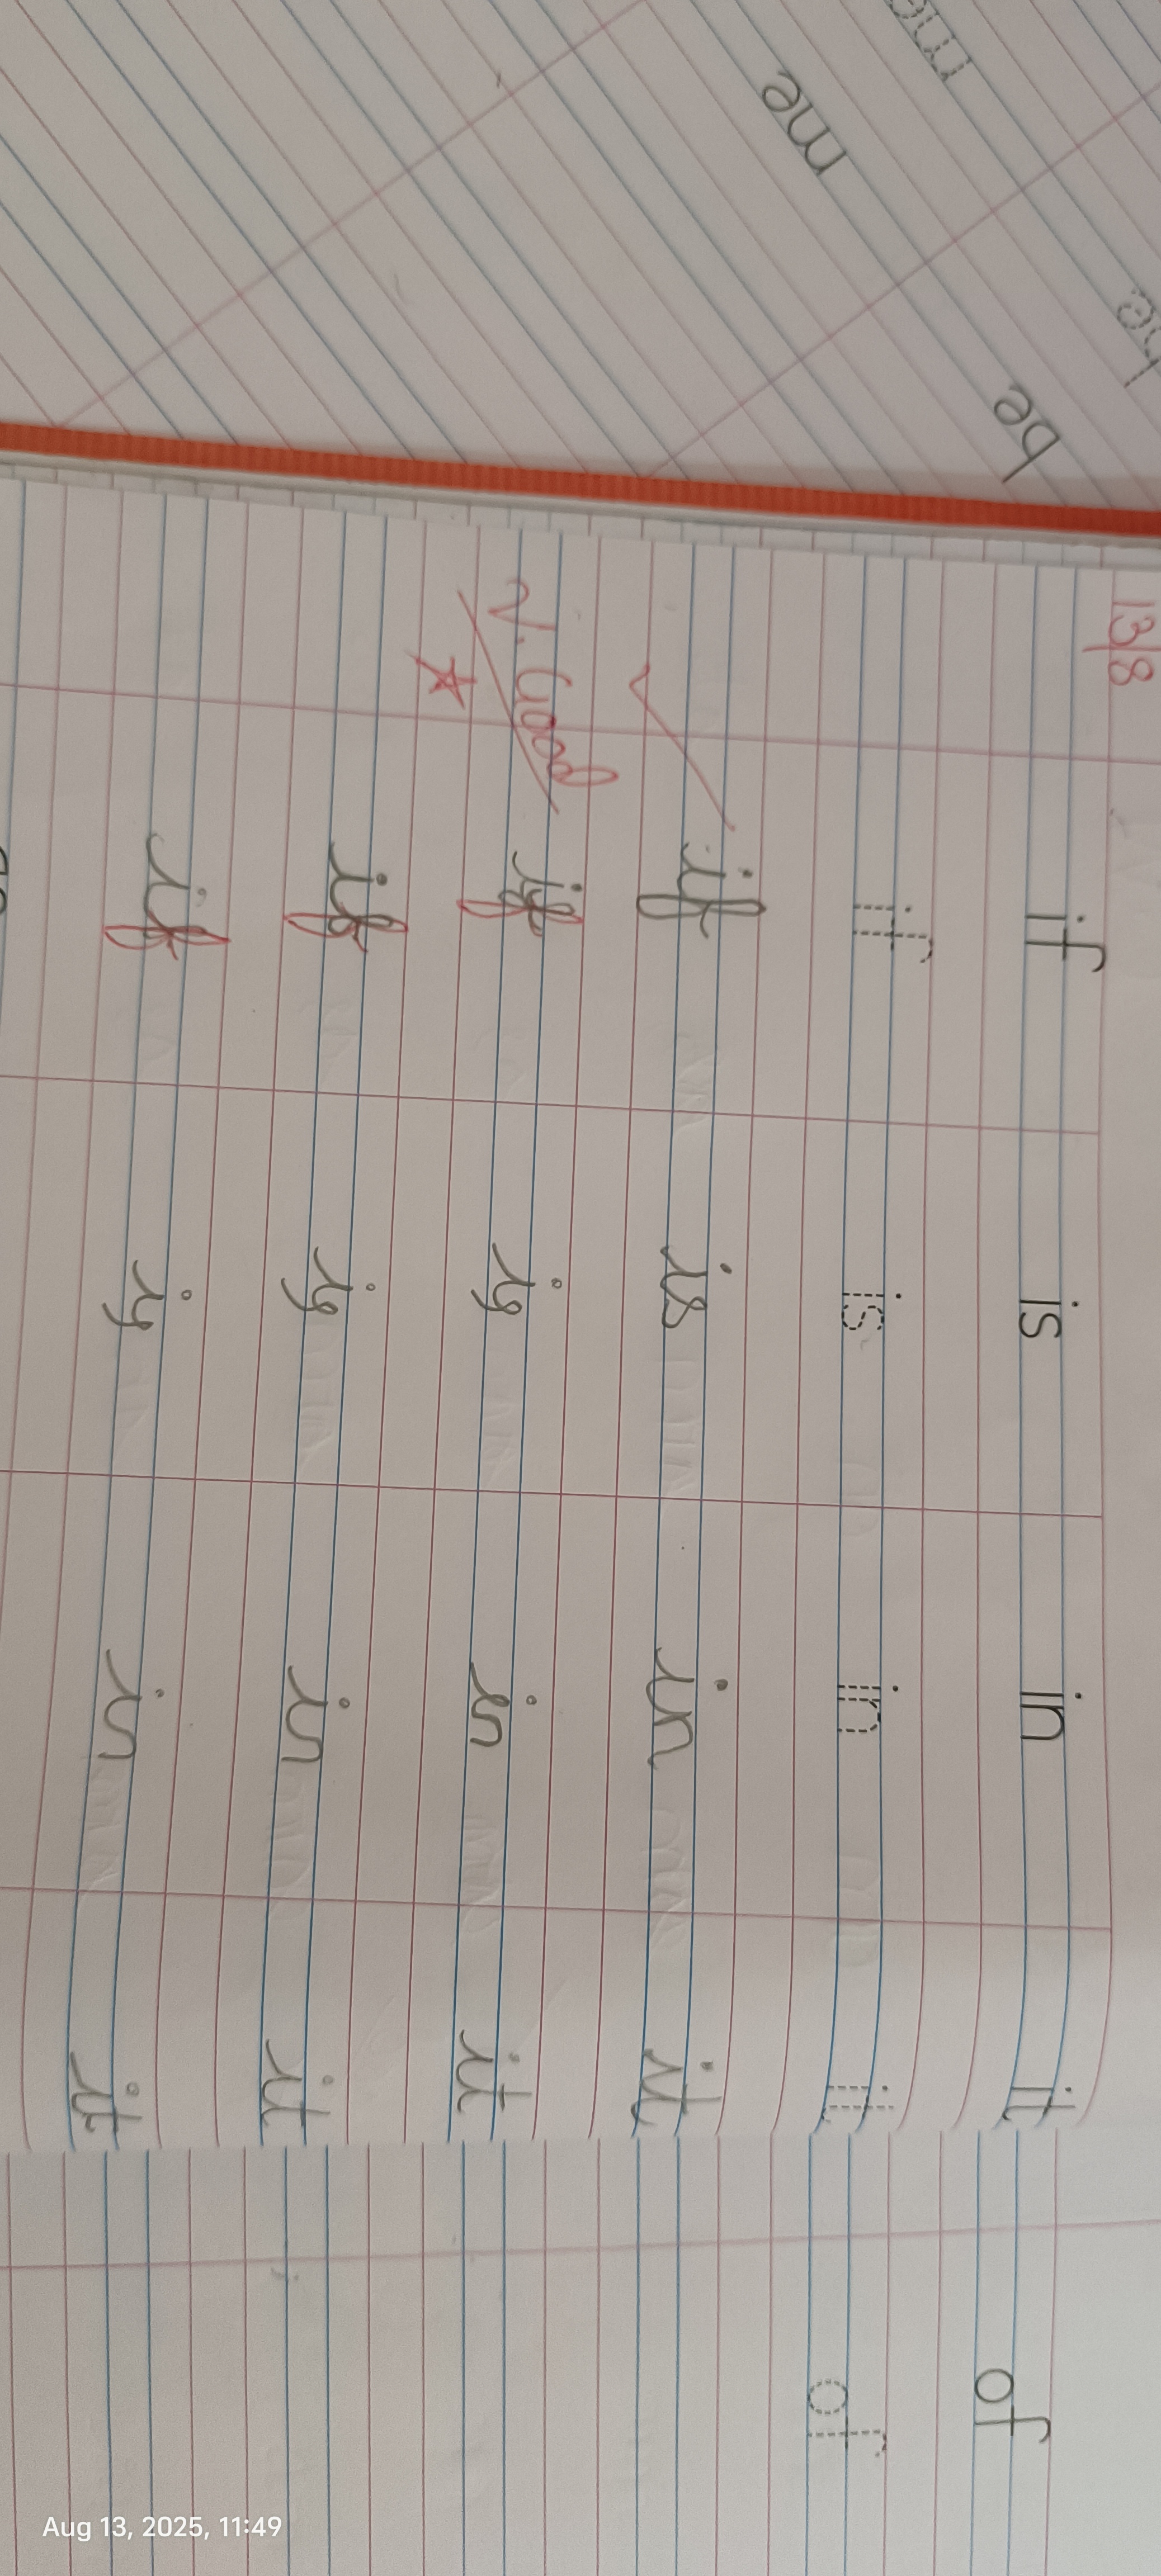 be me
be me
13/8
if is in it of
if is in it of
if is in it
V. Good
if is in it
if is in it
if is in it
Aug 13, 2025, 11:49